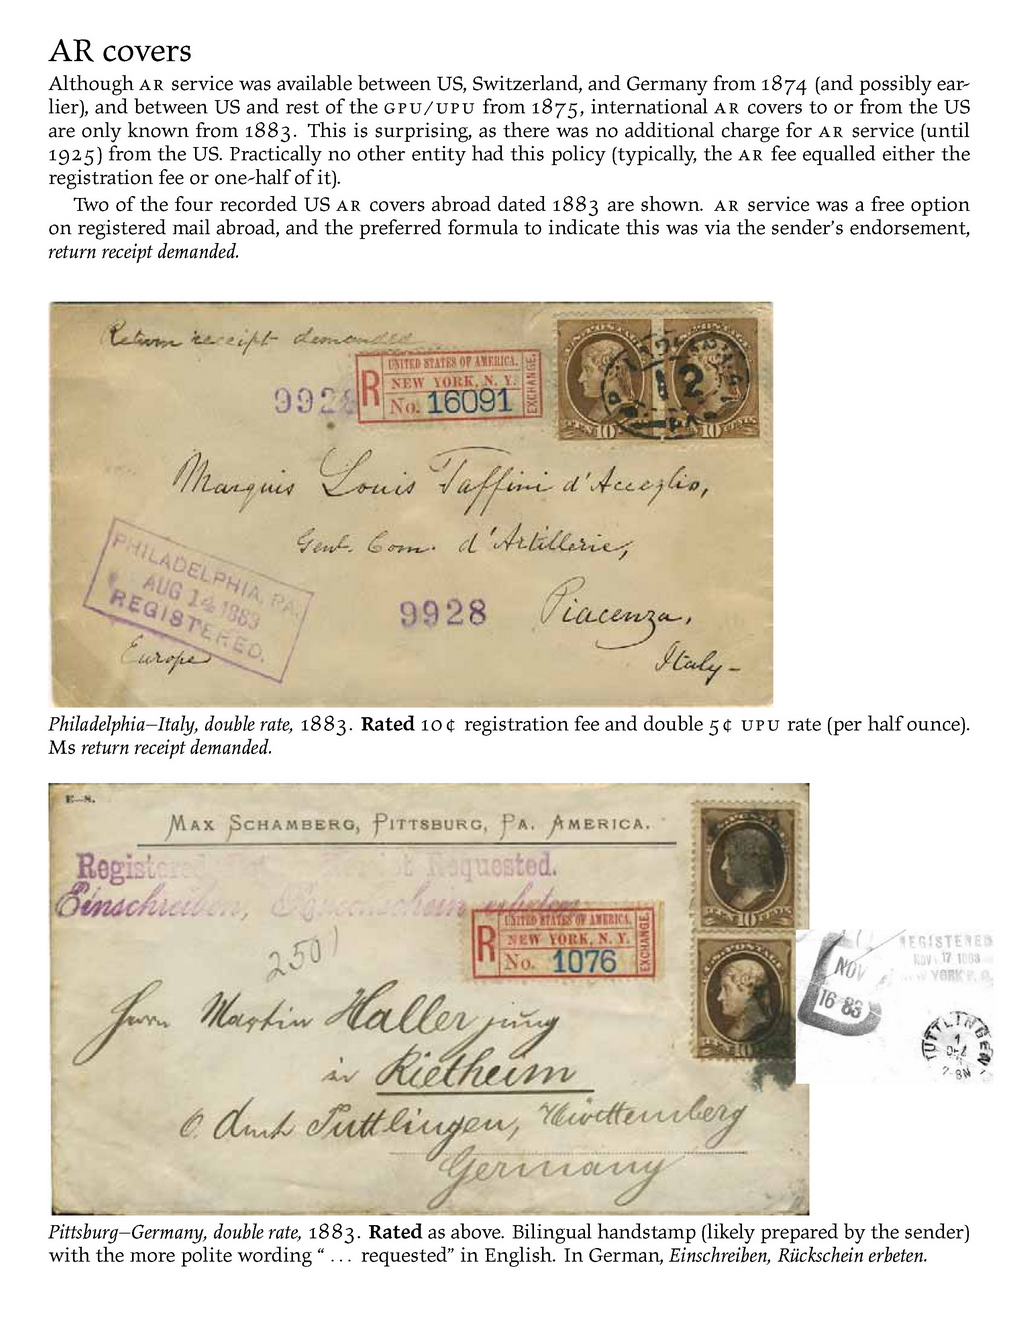 AR covers
Although AR service was available between US, Switzerland, and Germany from 1874 (and possibly ear-
lier), and between US and rest of the GPU/UPU from 1875, international AR covers to or from the US
are only known from 1883. This is surprising, as there was no additional charge for AR service (until
1925) from the US. Practically no other entity had this policy (typically, the AR fee equalled either the
registration fee or one-half of it).
Two of the four recorded US AR covers abroad dated 1883 are shown. AR service was a free option
on registered mail abroad, and the preferred formula to indicate this was via the sender's endorsement,
return receipt demanded.
Return receipt demanded
UNITED STATES OF AMERICA.
R NEW YORK, N. Y.
No. 16091
EXCHANGE.
9928
12
Marquis Louis Taffini d'Acceglio,
Genl. Com. d'Artillerie,
PHILADELPHIA, PA.
AUG 14 1883
REGISTERED.
9928
Piacenza,
Europe
Italy-
Philadelphia–Italy, double rate, 1883. Rated 10¢ registration fee and double 5¢ UPU rate (per half ounce).
Ms return receipt demanded.
E—S.
MAX SCHAMBERG, PITTSBURG, PA. AMERICA.
Registered Requested.
Einschreiben,
UNITED STATES OF AMERICA.
R NEW YORK, N. Y.
No. 1076
EXCHANGE.
2501
REGISTERED
NOV 17 1883
NEW YORK
NOV
16 83
TUTTLINGEN
1
DEZ
Herrn Martin Haller jung
in Rietheim
O. durch Tuttlingen, Württemberg
Germany
Pittsburg–Germany, double rate, 1883. Rated as above. Bilingual handstamp (likely prepared by the sender)
with the more polite wording “ ... requested” in English. In German, Einschreiben, Rückschein erbeten.